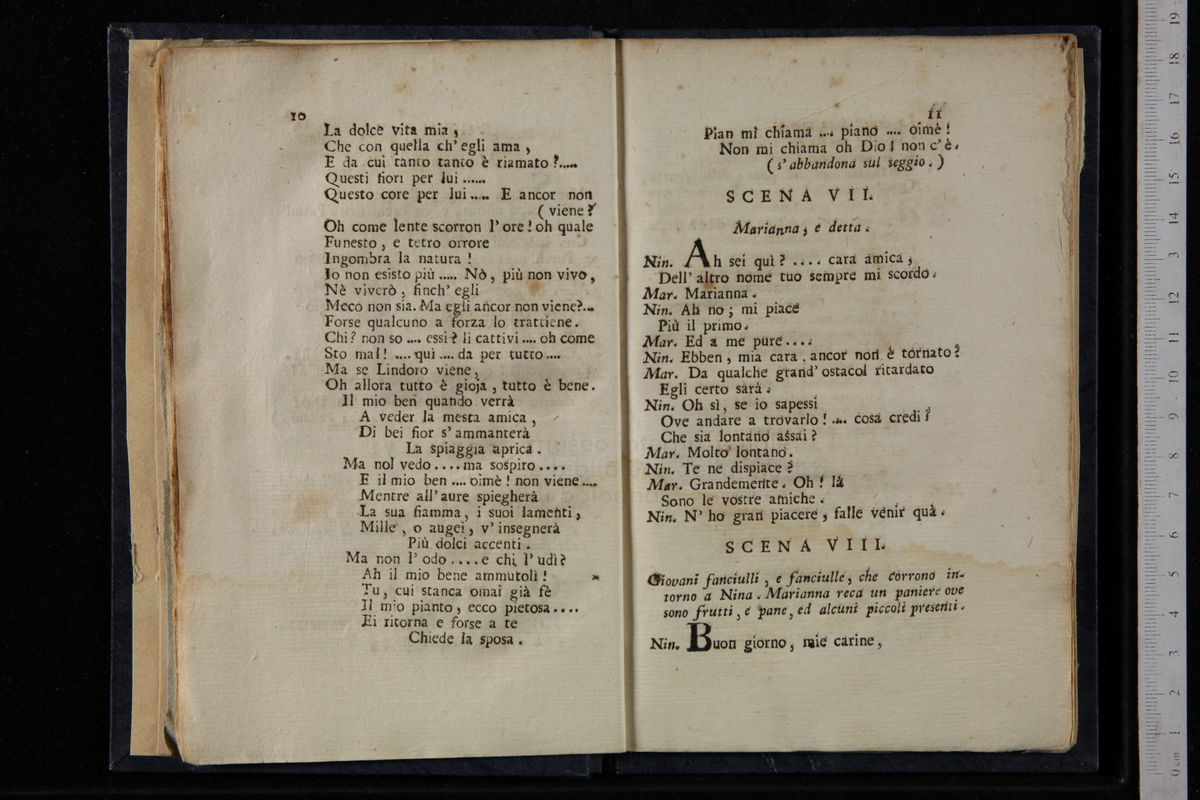 10
La dolce vita mia ,
Che con quella ch' egli ama ,
E da cui tanto tanto è riamato ?.....
Questi fiori per lui ......
Questo core per lui ..... E ancor non
( viene ?
Oh come lente scorron l' ore ! oh quale
Funesto , e tetro orrore
Ingombra la natura !
Io non esisto più ..... Nò , più non vivo ,
Nè viverò , finch' egli
Meco non sia. Ma egli ancor non viene?...
Forse qualcuno a forza lo trattiene.
Chi? non so .... essi ? li cattivi .... oh come
Sto mal! .... quì .... da per tutto ....
Ma se Lindoro viene,
Oh allora tutto è gioja , tutto è bene.
Il mio ben quando verrà
A veder la mesta amica ,
Di bei fior s' ammanterà
La spiaggia aprica .
Ma nol vedo .... ma sospiro ....
E il mio ben .... oimè ! non viene ....
Mentre all' aure spiegherà
La sua fiamma, i suoi lamenti,
Mille , o augei, v' insegnerà
Più dolci accenti .
Ma non l' odo .... e chi l' udì?
Ah il mio bene ammutolì !
Tu, cui stanca omai già fè
Il mio pianto, ecco pietosa ....
Ei ritorna e forse a te
Chiede la sposa .
11
Pian mi chiama .... piano .... oimè !
Non mi chiama oh Dio ! non c'è.
( s' abbandona sul seggio . )
SCENA VII.
Marianna, e detta .
Nin. Ah sei quì ? .... cara amica ,
Dell' altro nome tuo sempre mi scordo.
Mar. Marianna .
Nin. Ah no ; mi piace
Più il primo.
Mar. Ed a me pure ....
Nin. Ebben , mia cara , ancor non è tornato ?
Mar. Da qualche grand' ostacol ritardato
Egli certo sarà .
Nin. Oh sì, se io sapessi
Ove andare a trovarlo ! .... cosa credi ?
Che sia lontano assai ?
Mar. Molto lontano.
Nin. Te ne dispiace ?
Mar. Grandemente. Oh ! là
Sono le vostre amiche .
Nin. N' ho gran piacere , falle venir quà .
SCENA VIII.
Giovani fanciulli , e fanciulle, che corrono in-
torno a Nina . Marianna reca un paniere ove
sono frutti, e pane, ed alcuni piccoli presenti.
Nin. Buon giorno, mie carine,